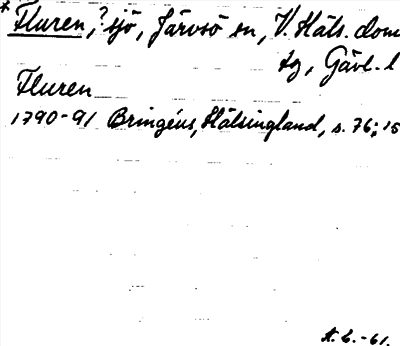 * Fluren,? sjö, Järvsö sn, V. Häls. dom
sg, Gävl. l
Fluren
1790-91 Bringéus, Hälsingland, s. 76; 15
A.L.-61.